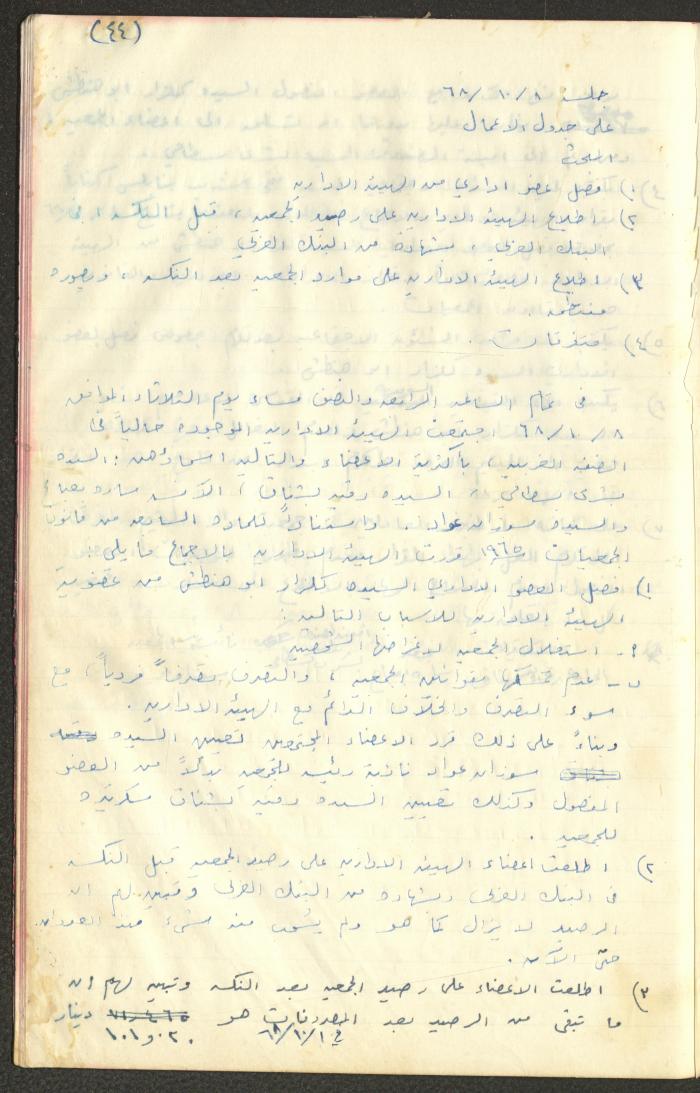 (٤٤)
جلسة ٨/١٠/٦٨
على جدول الاعمال
١) فصل عضو اداري من الهيئة الادارية
٢) اطلاع الهيئة الادارية على رصيد الجمعية، قبل النكسة، في
البنك العربي، بشهادة من البنك العربي
٣) اطلاع الهيئة الادارية على موارد الجمعية بعد النكسة، وبصورة
منتظمة.
٤) متفرقات.
في تمام الساعة الرابعة والنصف مساء يوم الثلاثاء الموافق
٨/١٠/٦٨ اجتمعت الهيئة الادارية الموجودة حالياً في
الضفة الغربية، بأكثرية الاعضاء والتالية اسماؤهن: السيدة
يسرى بسطامي، السيدة رقية شناق، الآنسة سارة
والسيدة سوزان عواد. واستناداً للمادة السابعة من قانون
الجمعيات ١٩٦٥ قررت الهيئة الادارية بالاجماع ما يلي:
١) فصل العضو الاداري السيدة كلزار ابو هنطش من عضوية
الهيئة الادارية للاسباب التالية:
أ- استغلال الجمعية لاغراضها الشخصية
ب- عدم تمسكها بقوانين الجمعية، والتصرف تصرفاً فردياً، مع
سوء التصرف والخلاف الدائم مع الهيئة الادارية.
وبناءً على ذلك قرر الاعضاء المجتمعين تعيين السيدة
سوزان عواد نائبة رئيسة للجمعية بدلاً من العضو
المفصول وكذلك تعيين السيدة رقية شناق سكرتيرة
للجمعية.
٢) اطلعت اعضاء الهيئة الادارية على رصيد الجمعية قبل النكسة
في البنك العربي وبشهادة من البنك العربي وتبين لهم ان
الرصيد لا يزال كما هو ولم يسحب منه شيء منذ العدوان
حتى الآن.
٣) اطلعت الاعضاء على رصيد الجمعية بعد النكسة وتبين لهم ان
ما تبقى من الرصيد بعد المصروفات هو دينار
في ١/١٠/٦٨ ١٠١و٠٢٠